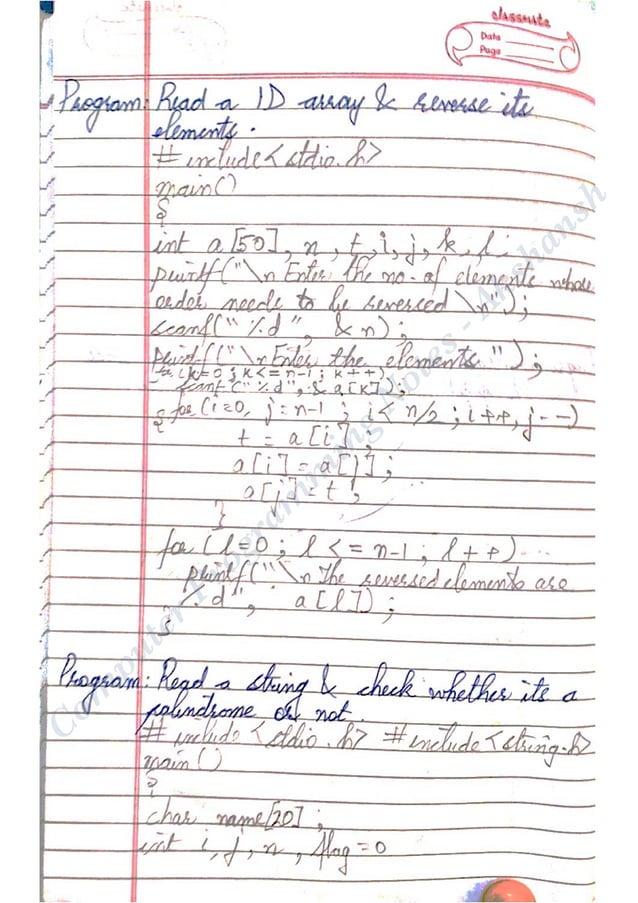 classmate
Date
Page
Program: Read a 1D array & reverse its
elements.
# include<stdio.h>
main()
{
int a[50], n, t, i, j, k, l;
printf("\n Enter the no. of elements whose
order needs to be reversed \n");
scanf("%d", &n);
printf("\nEnter the elements");
for (k=0; k<=n-1; k++)
scanf("%d", &a[k]);
for(i=0, j=n-1; i<n/2; i++, j--)
{
t = a[i];
a[i] = a[j];
a[j] = t;
}
for (l=0; l<=n-1; l++)
printf("\n The reversed elements are
%d", a[l]);
}
Program: Read a string & check whether its a
palindrome or not.
# include<stdio.h> #include<string.h>
main()
{
char name[20];
int i, j, n, flag=0
Computer Programming Notes - Anshansh